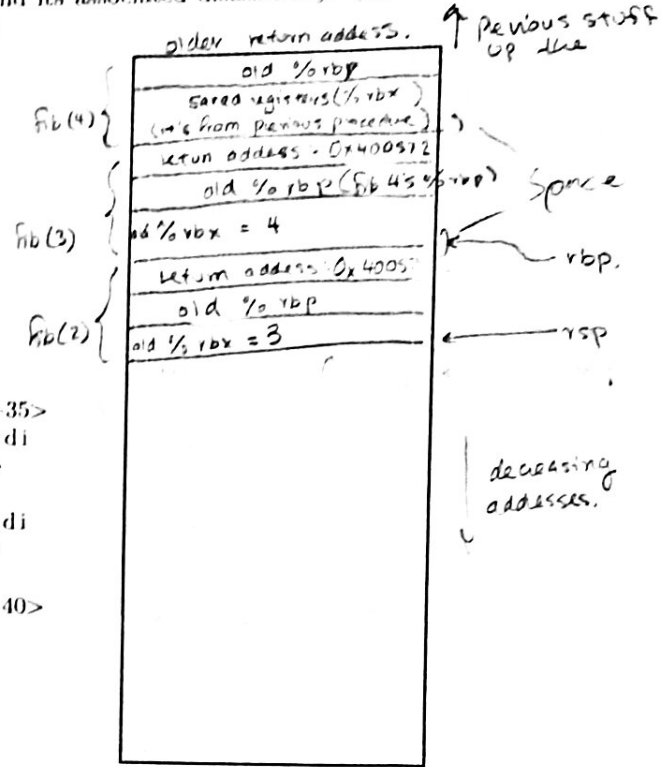 older return addess.
↑ Pevious stuff
up the
old %rbp
saved registers(%rbx)
(it's from previous procedure)
fib(4)
retun addess - 0x400572
old %rbp (fib 4's %rbp)
Space
%rbx = 4
fib(3)
rbp.
return address 0x4005
old %rbp
fib(2)
old % rbx = 3
rsp
35>
di
decreasing
addesses.
di
40>